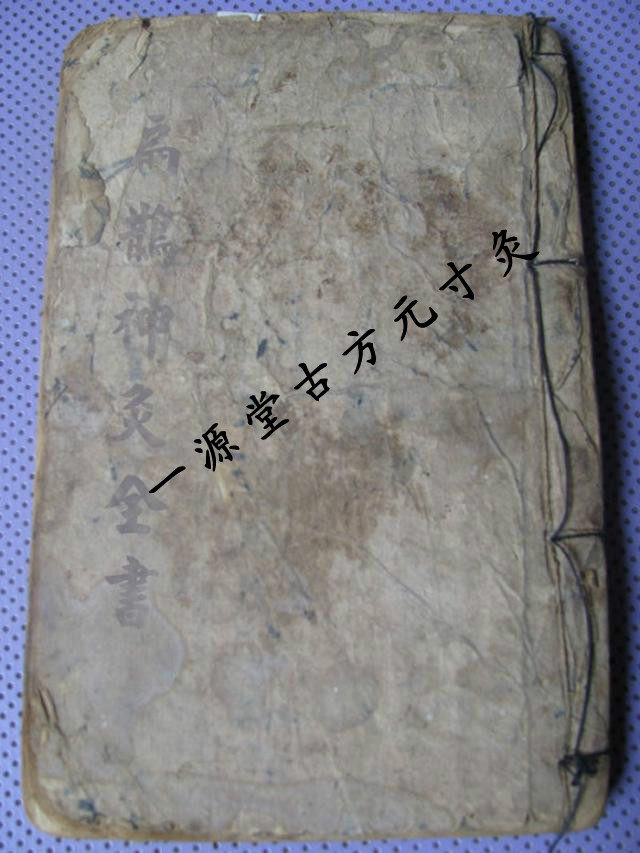 扁鵲神灸全書
一源堂古方元寸灸